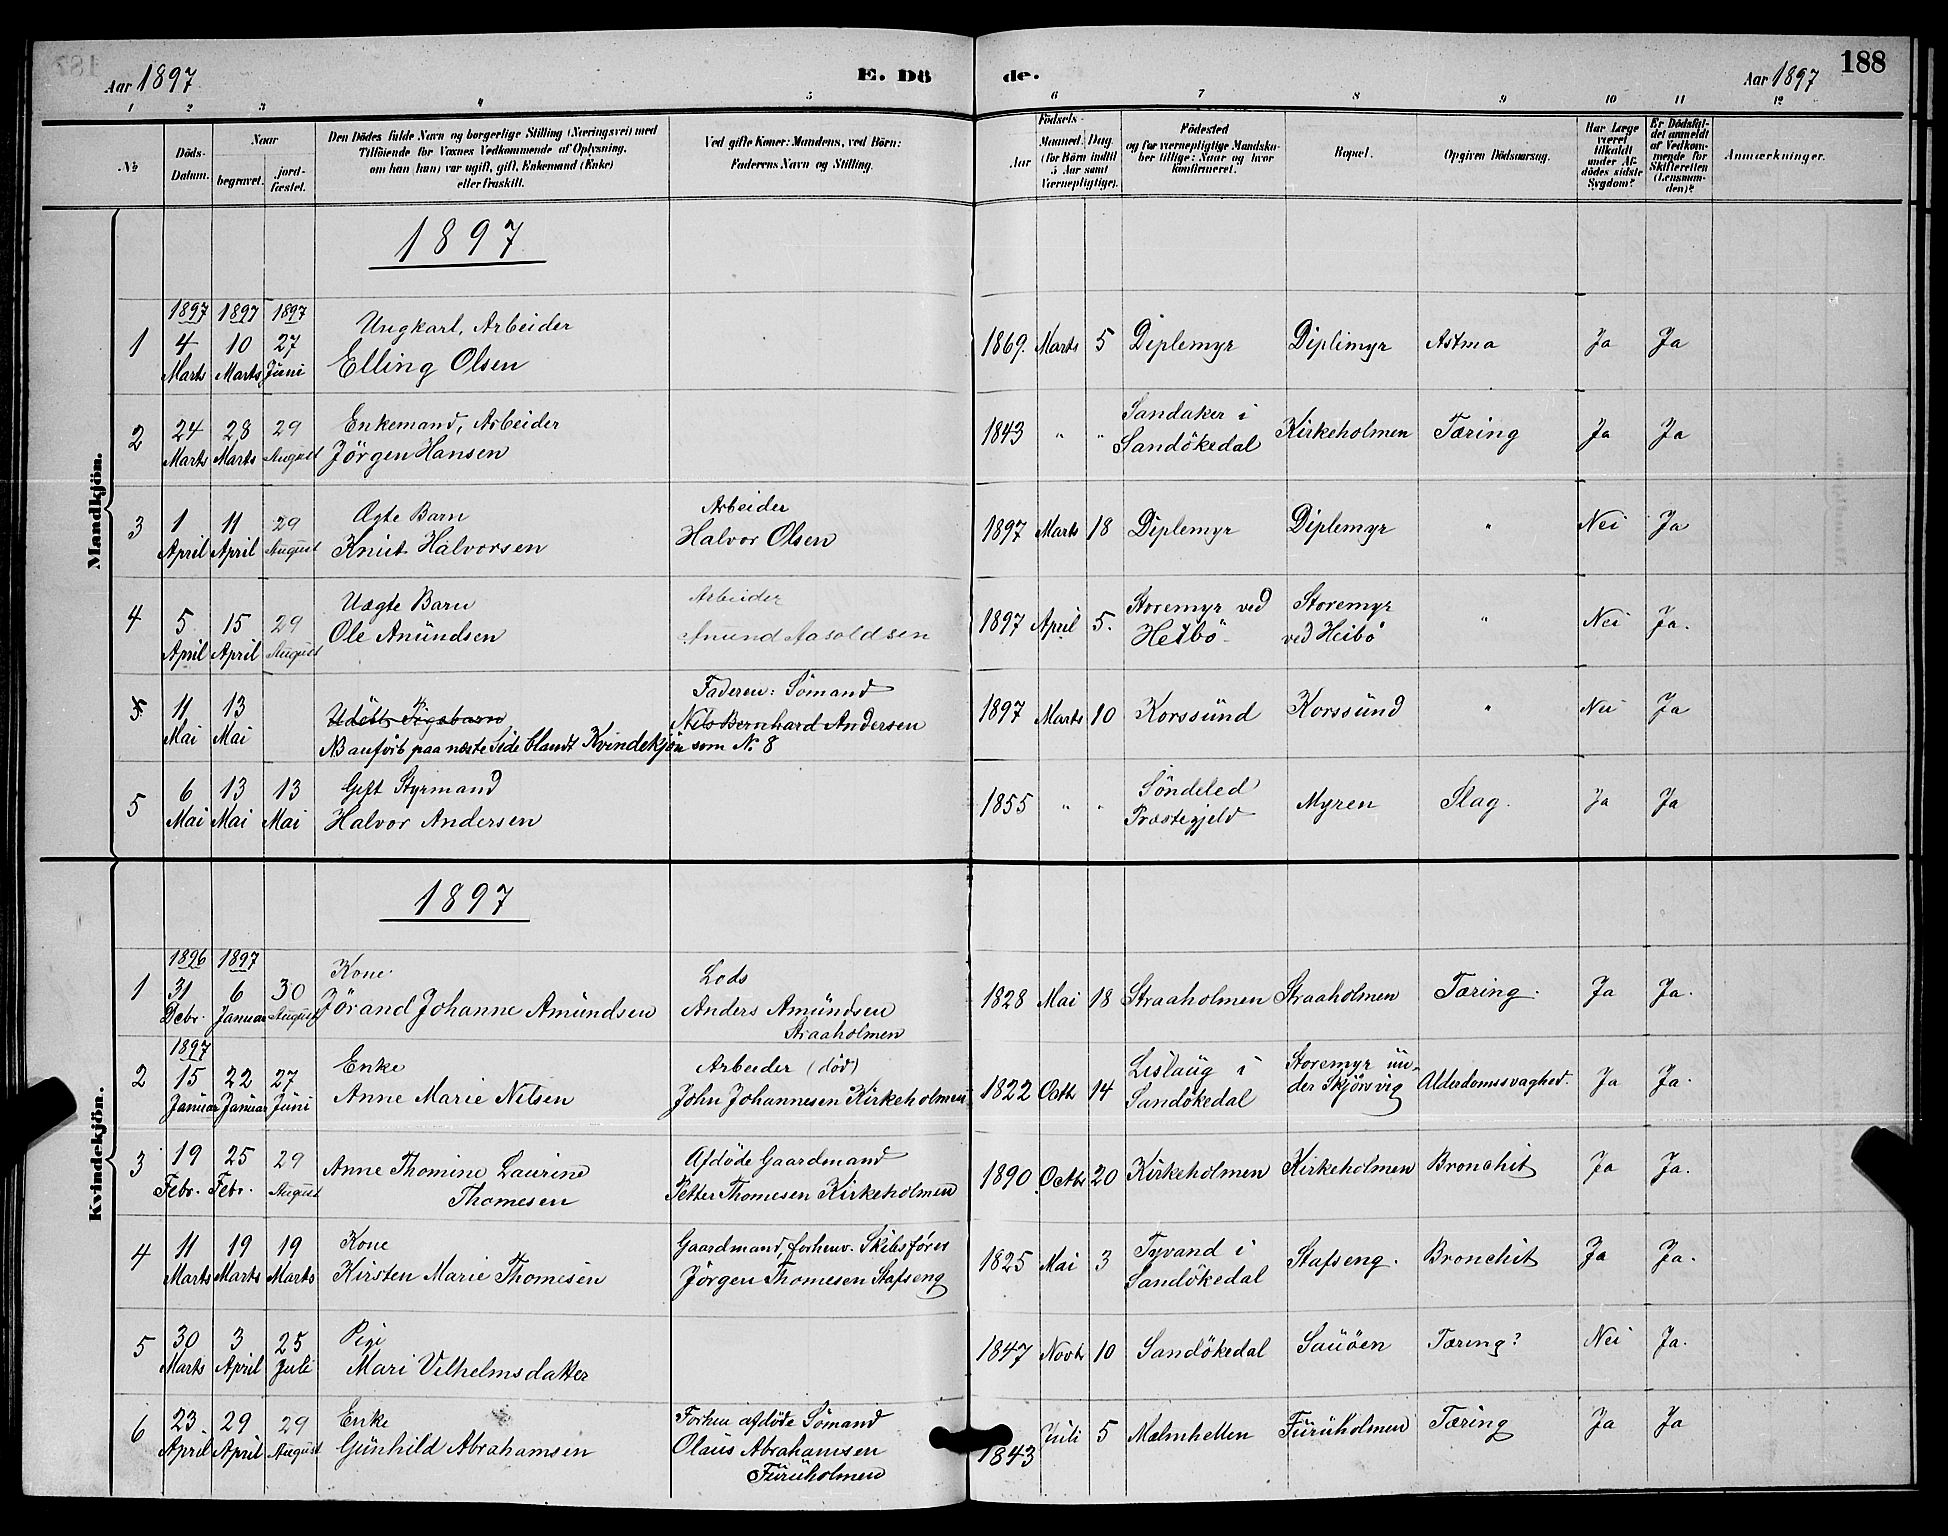 Aar 1897
E. Dö
de.
Aar 1897
188
1 2 3 4 5 6 7 8 9 10 11 12
No
Döds-
Datum.
Naar
begravet.
jord-
fæstet.
Den Dödes fulde Navn og borgerlige Stilling (Næringsvei) med
Tilföiende for Voxnes Vedkommende af Oplysning,
om han (hun) var ugift, gift, Enkemand (Enke)
eller fraskilt.
Ved gifte Koner: Mandens, ved Börn:
Faderens Navn og Stilling.
Födsels-
Aar
Maaned. Dag
(for Börn indtil
5 Aar samt
Værnepligtige).
Födested
og for værnepligtige Mandska-
ber tillige: Naar og hvor
konfirmeret.
Bopæl.
Opgiven Dödsaarsag.
Har Læge
været
tilkaldt
under Af-
dödes sidste
Sygdom?
Er Dödsfal-
det anmeldt
af Vedkom-
mende for
Skifteretten
(Lensman-
den)?
Anmærkninger.
Mandkjön.
1897
1897 1897 1897
1 4 Marts 10 Marts 27 Juni
Ungkarl, Arbeider
Elling Olsen
1869. Marts 5 Diplemyr Diplimyr Astma Ja Ja
2 24 Marts 28 Marts 29 August
Enkemand, Arbeider
Jörgen Hansen
1843 " " Sandaker i
Sandökedal
Kirkeholmen Tæring Ja Ja
3 1 April 11 April 29 August
Ægte Barn
Knut Halvorsen
Arbeider
Halvor Olsen
1897 Marts 18 Diplemyr Diplemyr " Nei Ja
4 5 April 15 April 29 August
Uægte Barn
Ole Anundsen
Arbeider
Anund Aasoldsen
1897 April 5. Storemyr ved
Heibö
Storemyr
ved Heibö
" Nei Ja.
5 11 Mai 13 Mai
Udöbt Pigebarn
NB anförb paa næste Side blandt Kvindekjön som No 8
Faderen: Sömand
Nils Bernhard Andersen
1897 Marts 10 Korssund Korssund " Nei Ja
5 6 Mai 13 Mai 13 Mai
Gift Styrmand
Halvor Andersen
1855 " " Söndeled
Præstegjeld
Myren Slag. Ja Ja
Kvindekjön.
1897
1896 1897
1 31 Debr. 6 Januar 30 August
Kone
Jörand Johanne Amundsen
Lods
Anders Amundsen
Straaholmen
1828 Mai 18 Straaholmen Straaholmen Tæring. Ja Ja.
1897
2 15 Januar 22 Januar 27 Juni
Enke
Anne Marie Nilsen
Arbeider (död)
John Johannesen Kirkeholmen
1822 Octb 14 Lislaug i
Sandökedal
Storemyr un-
der Skjörvig
Alderdomssvaghed. Ja Ja.
3 19 Febr. 25 Febr. 29 August
Anne Thomine Laurine
Thomesen
Afdöde Gaardmand
Petter Thomesen Kirkeholmen
1890 Octb 20 Kirkeholmen Kirkeholmen Bronchit Ja Ja.
4 11 Marts 19 Marts 19 Marts
Kone
Kirsten Marie Thomesen
Gaardmand, forhenv. Skibsförer
Jörgen Thomesen Stafseng
1825 Mai 3 Tyvand i
Sandökedal
Stafseng. Bronchit Ja Ja.
5 30 Marts 3 April 25 Juli
Pige
Mari Vilhelmsdatter
1847 Novb 10 Sandökedal Sauöen Tæring? Nei Ja.
6 23. April 29 April 29 August
Enke
Gunhild Abrahamsen
Forhen afdöde Sömand
Olaus Abrahamsen
Furuholmen
1843 Juli 5 Malmhellen Furuholmen Tæring Ja Ja